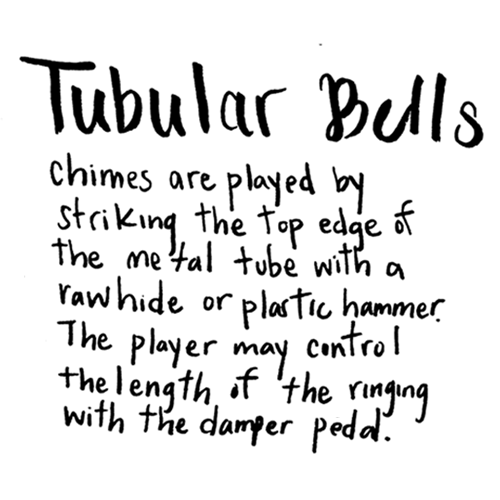 Tubular Bells
chimes are played by
striking the top edge of
the metal tube with a
rawhide or plastic hammer.
The player may control
the length of the ringing
with the damper pedal.